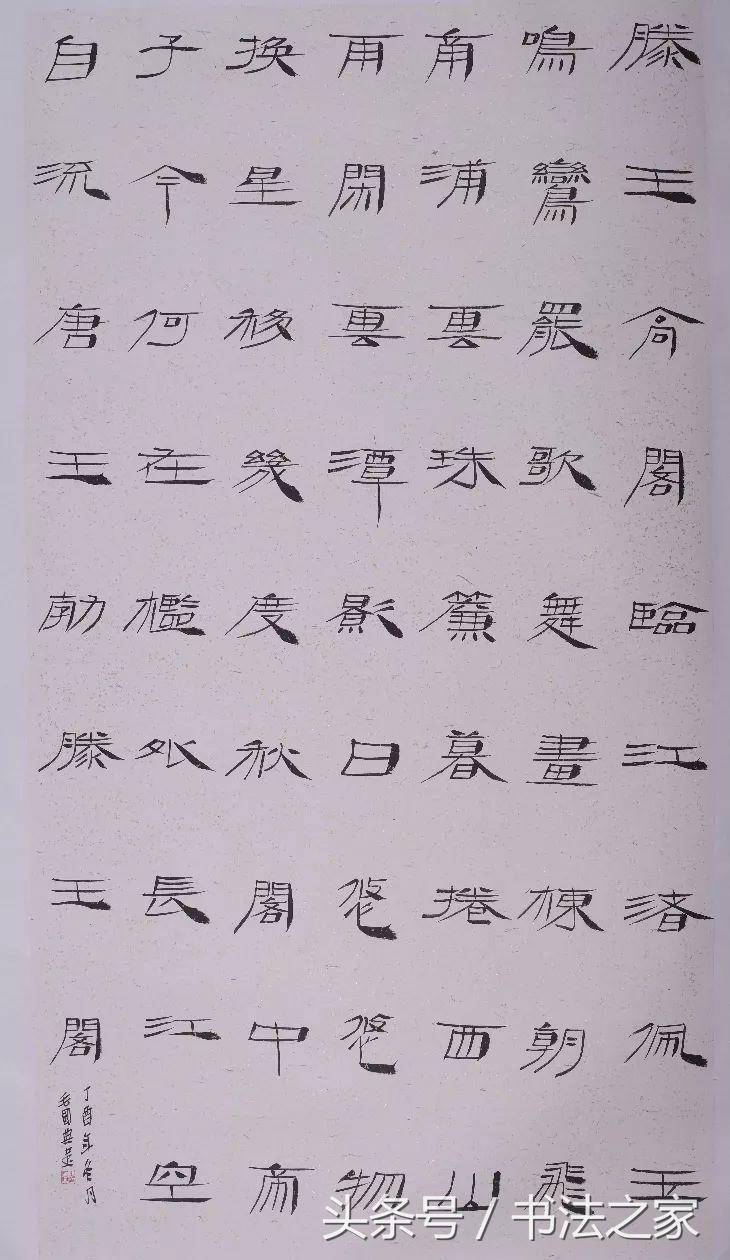 滕王高閣臨江渚佩玉
鳴鸞罷歌舞畫棟朝飛
南浦雲珠簾暮捲西山
雨閑雲潭影日悠悠物
換星移幾度秋閣中帝
子今何在檻外長江空
自流唐王勃滕王閣
丁酉年冬月
毛國典
头条号 / 书法之家